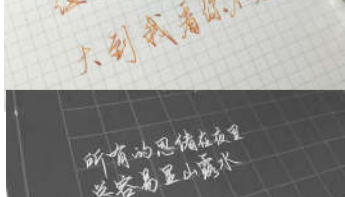 大到我看你
所有的思绪在夜里
总容易显山露水